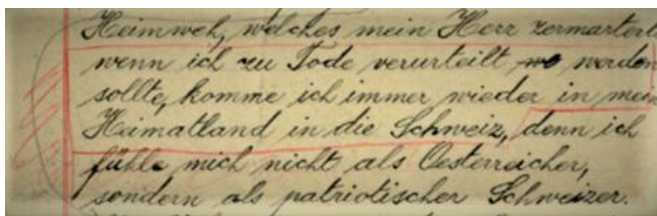 Heimweh, welches mein Herz zermartert
wenn ich zu Tode verurteilt werden
sollte, komme ich immer wieder in mein
Heimatland in die Schweiz, denn ich
fühle mich nicht als Oesterreicher,
sondern als patriotischer Schweizer.